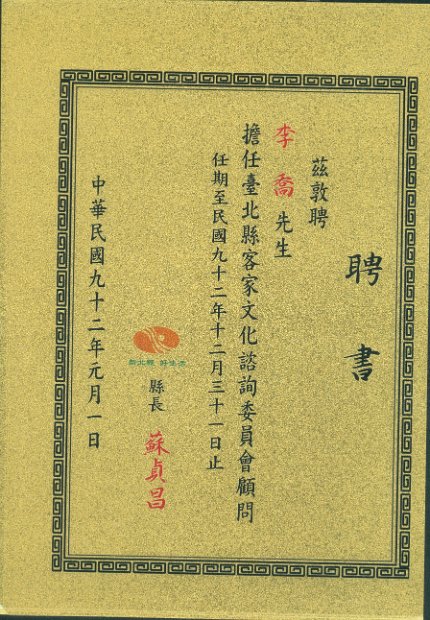 聘書
茲敦聘
李喬先生
擔任臺北縣客家文化諮詢委員會顧問
任期至民國九十二年十二月三十一日止
縣長 蘇貞昌
中華民國九十二年元月一日